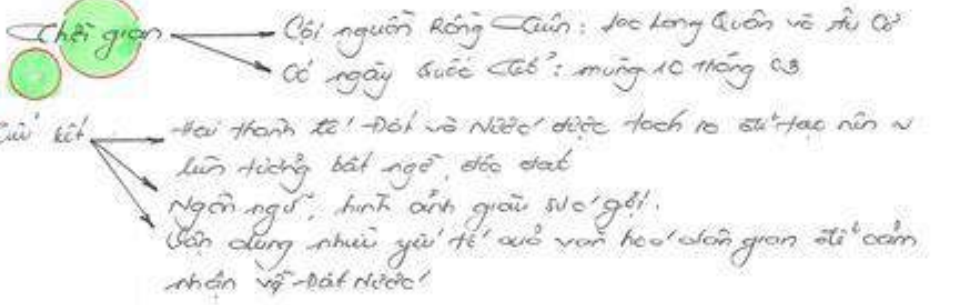 Thời gian
Cội nguồn Rồng Tiên: Lạc Long Quân và Âu Cơ
Có ngày Quốc Tổ: mùng 10 tháng 03
kết
Hai thành tố Đất và Nước được tách ra để tạo nên
liên tưởng bất ngờ, độc đáo
Ngôn ngữ, hình ảnh giàu sức gợi.
Vận dụng nhiều yếu tố của văn hoá dân gian để cảm
nhận về Đất Nước